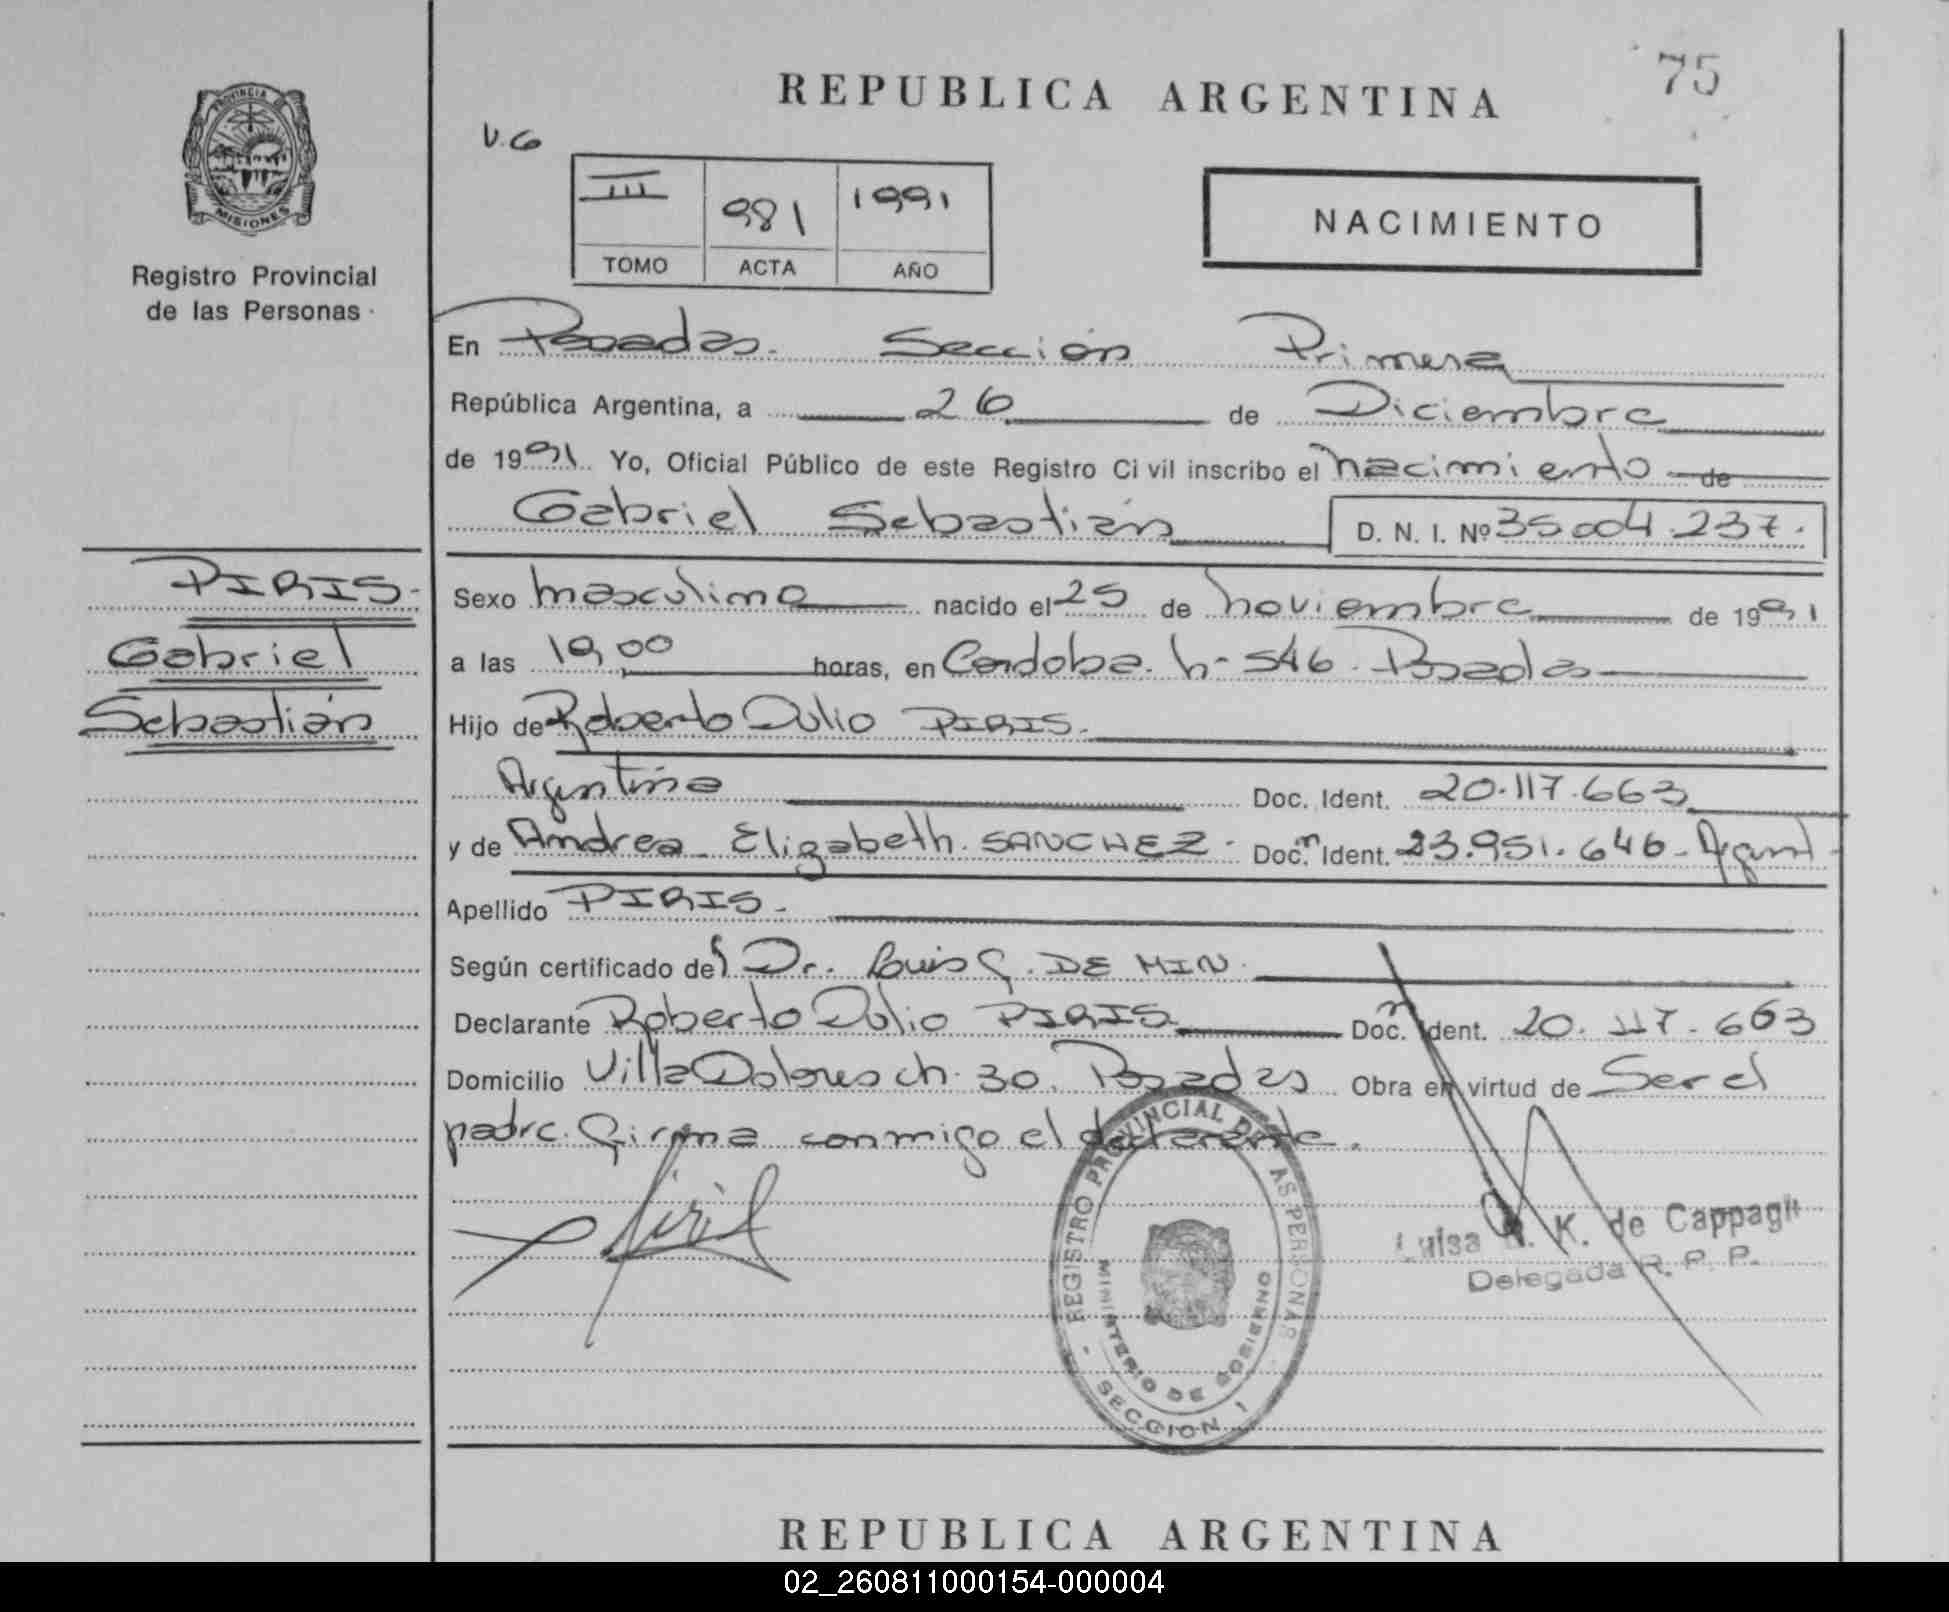 75
REPUBLICA ARGENTINA
V.G
III 981 1991
TOMO ACTA AÑO
NACIMIENTO
PROVINCIA DE
MISIONES
Registro Provincial
de las Personas
En Posadas. Sección Primera
República Argentina, a 26 de Diciembre
de 1991 Yo, Oficial Público de este Registro Civil inscribo el nacimiento de
Gabriel Sebastián D. N. I. Nº 35.004.237.
PIRIS.
Gabriel
Sebastián
Sexo masculino nacido el 25 de noviembre de 1991
a las 19,00 horas, en Cordoba. n- 546. Posadas
Hijo de Roberto Dulio PIRIS.
Argentino Doc. Ident. 20.117.663
y de Andrea Elizabeth. SANCHEZ. Doc. Ident. 23.951.646- Argent.
Apellido PIRIS.
Según certificado del Dr. Luis G. DE MIN.
Declarante Roberto Dulio PIRIS Doc. Ident. 20.117.663
Domicilio Villa Dolores ch. 30. Posadas Obra en virtud de Ser el
padre. Firma conmigo el declarante.
Piris
REGISTRO PROVINCIAL DE LAS PERSONAS
MINISTERIO DE GOBIERNO
- SECCION 1
Luisa K. de Cappagli
Delegada R. P. P.
REPUBLICA ARGENTINA
02_260811000154-000004